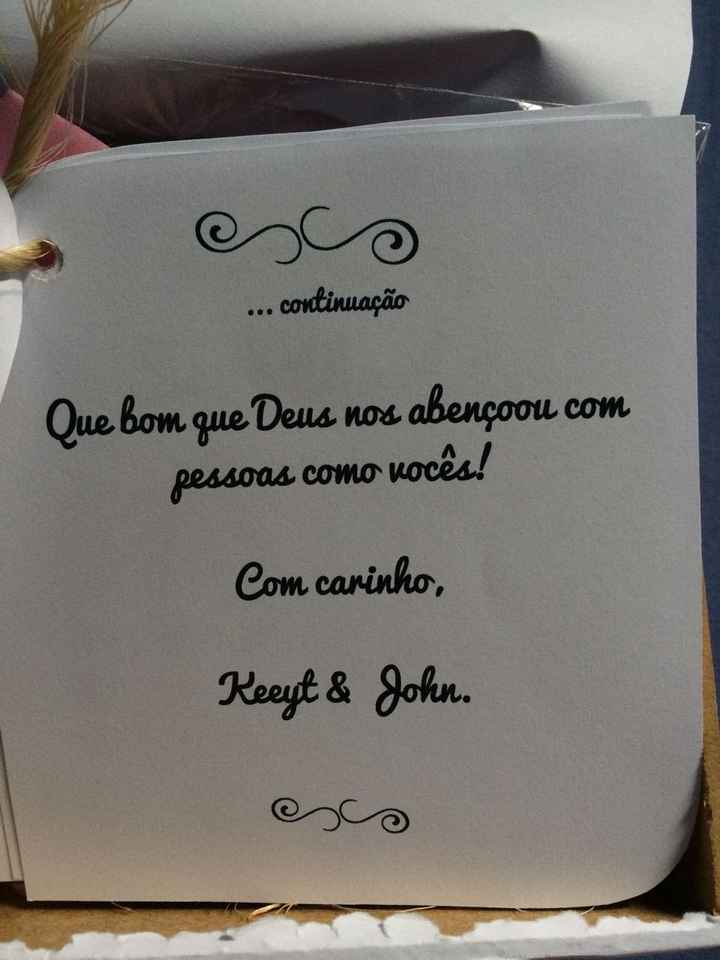 ... continuação
Que bom que Deus nos abençoou com
pessoas como vocês!
Com carinho,
Keeyt & John.